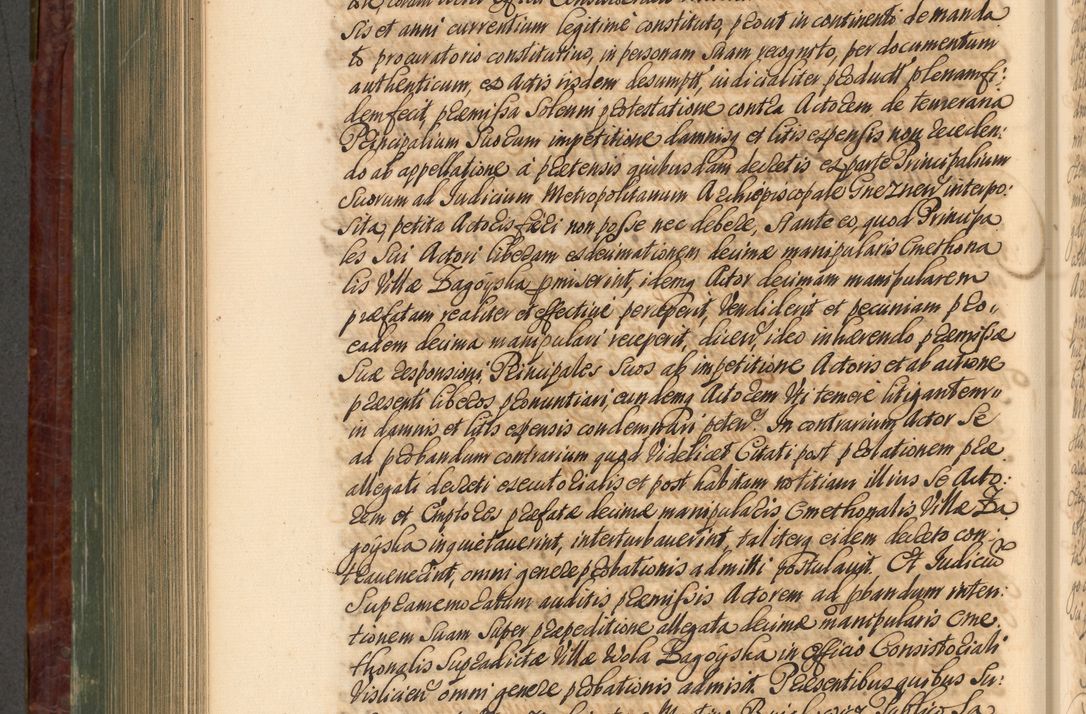 sis et anni currentium legitime constituto, prout in continenti de manda
to procuratorio constitutivo, in personam suam recognito, per documentum
authenticum, ex Actis iisdem desumpt' iudicialiter product' plenam fi:
dem fecit, præmissa solenni protestatione contra Actorem de temeraria
Principalium Suorum impetitione damnisq et litis expensis non receden:
do ab appellatione à prætensis quibusdam decretis ex parte Principalium
Suorum ad Iudicium Metropolitanum Archiepiscopale Gneznen' interpo:
sita, petita Actoris fieri non posse nec debere, stante eo, quod Principa
les Sui Actori liberam exdecimationem decimæ manipularis Cmethona
lis Villæ Zagoyska pmiserint, idemq Actor decimam manipularem
præfatam realiter et effective perceperit, Vendiderit et pecuniam pro,,
eadem decima manipulari receperit, dicen', ideo inhærendo præmissæ
Suæ responsioni, Principales Suos ab impetitione Actoris et ab actione
præsenti liberos pronuntiari, eundemq Actorem Uti temere litigantem,,
in damnis et litis expensis condemnari peten'. In contrarium Actor Se
ad probandum contrarium quod Videlicet Citati post prolationem præ
allegati decreti executorialis et post habitam notitiam illius Se Acto:
rem et Emptores præfatæ decimæ manipularis Cmethonalis Villæ Za
goyska inquietaverint, interturbaverint, taliterq eidem decreto con:
travenerint, omni genere probationis admitti postulavit. Et Iudiciu
Supramemoratum auditis præmissis Actorem ad pbandum inten:
tionem Suam Super præpeditione allegata decimæ manipularis Cme:
thonalis Supradictæ Villæ Wola Zagoyska in Officio Consistoriali
Vislicien' omni genere probationis admisit. Præsentibus quibus Su: